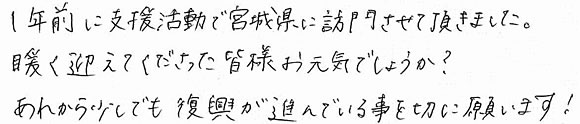 1年前に支援活動で宮城県に訪問させて頂きました。
暖く迎えてくださった皆様お元気でしょうか?
あれから少しでも復興が進んでいる事を切に願います!